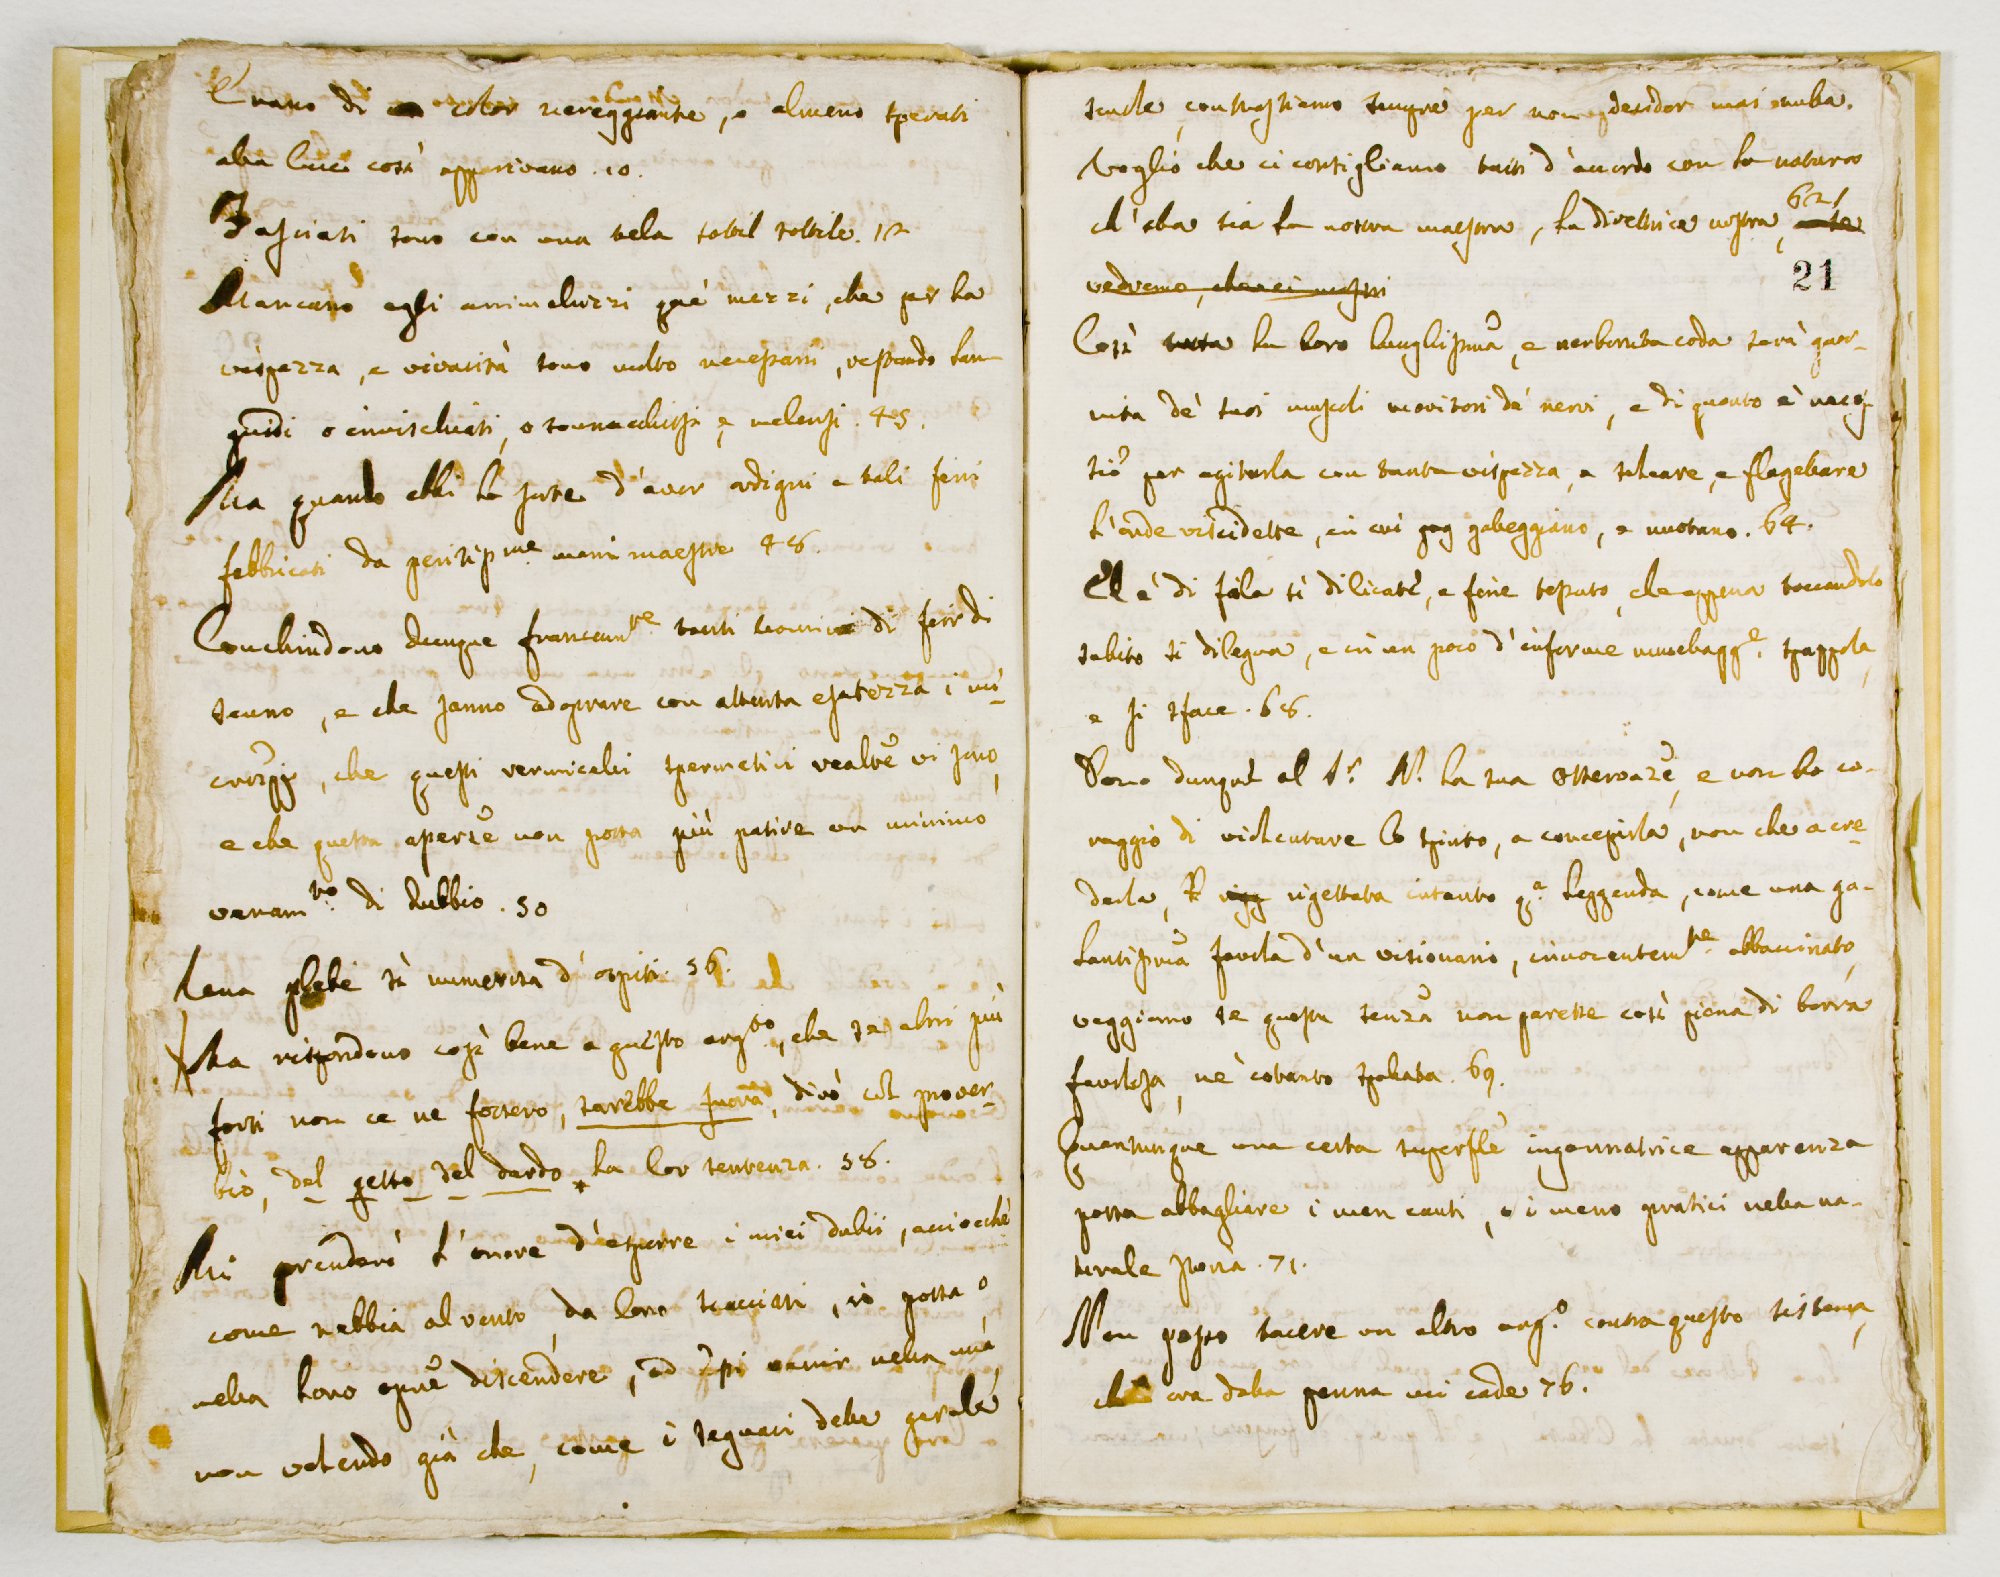 Erano di color nereggiante, o almeno sperati
alla luce così apparivano. 10.
Fasciati sono con una tela sottil sottile. 12
Mancano agli animeluzzi que' mezzi, che per la
vispezza, e vivacità sono molto necessarii, restando lan
guidi o invischiati, o sonnacchiosi, e melensi. 45.
Ma quando ebbi la sorte d'aver ordigni a tali fini
fabbricati da peritissme. mani maestre 48.
Conchiudono dunque francamte. tanti uomini di fior di
senno, e che sanno adoprare con attenta esatezza i mi-
che questi vermicelli spermatici realmē vi sono,
e che questa non possa più patire un minimo
di dubbio. 50
plebe sì numerosa d'ospiti. 56.
Ma rispondono così bene a questo argto., che se altri più
forti non ce ne fossero, sarebbe fuora, dirò col prover-
bio, del getto del dardo * la lor sentenza. 58.
Mi prenderò l'onore d'esporre i miei dubii, acciocchè
come nebbia al vento, da loro scacciati, io possa
nella loro discendere, ed venir nella mia,
non volendo già che, come i seguaci delle
scuole, contrastiamo sempre per non mai nulla.
Voglio che ci consigliamo tutti d'accordo con la natura
ch'ella sia la nostra maestra, la direttrice nostra, 62,
vedremo, che
21
Così la loro lunghissma, e nerboruta coda sarà guer-
nita de' suoi muscoli movitori de' nervi, e di quanto è neces-
sio per agitarla con tanta vispezza, a solcare, e flagellare
l'onde viscidette, in cui galeggiano, e nuotano. 64.
El è di fila sì dilicate, e fine tessuto, che appena toccandolo
subito si dilegua, e in un poco d'informe muccellagge. spappola,
e si sface. 68.
Sono dunque al Sr. N. la sua osservazē, e non ha co-
raggio di violentare lo spirito, a concepirla, non che a cre
derla, E rigettata intanto qa. leggenda, come una ga-
lantissma favola d'un visionario, innocentemte. abbacinato,
veggiamo se questa senzā non paresse così piena di borra
favolosa, nè cotanto spolpata. 69.
Quantunque una certa superfle ingannatrice apparenza
possa abbagliare i men cauti, o i meno pratici nella na-
turale storia. 71.
Non posso tacere un altro argo. contra questo sistema,
ch ora dalla penna mi cade 76.